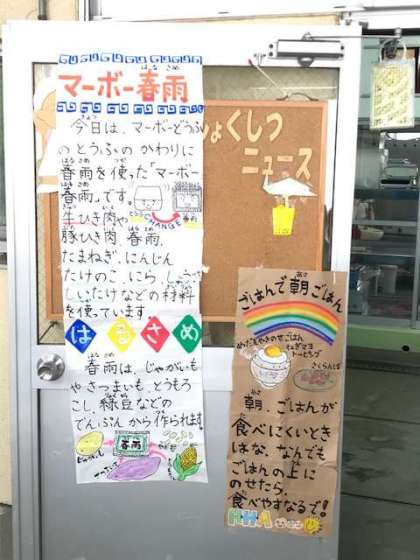 マーボー春雨
今日は、マーボーどうふ
のとうふの かわりに
春雨を使った「マーボー
春雨」です。
CHANGE
牛ひき肉や
豚ひき肉、春雨、
たまねぎ、にんじん
たけのこ、にら、しょうが、
しいたけなどの材料
を使っています。
はるさめ
春雨は、じゃがいも
やさつまいも、とうもろ
こし、緑豆などの
でんぷんから作られます。
春雨
ょくしつ
ニュース
ごはんで朝ごはん
めだまやきのせごはん
ねぎマヨ
朝、ごはんが
食べにくいとき
はな、なんでも
ごはんの上に
のせたら、
食べやすなるで!